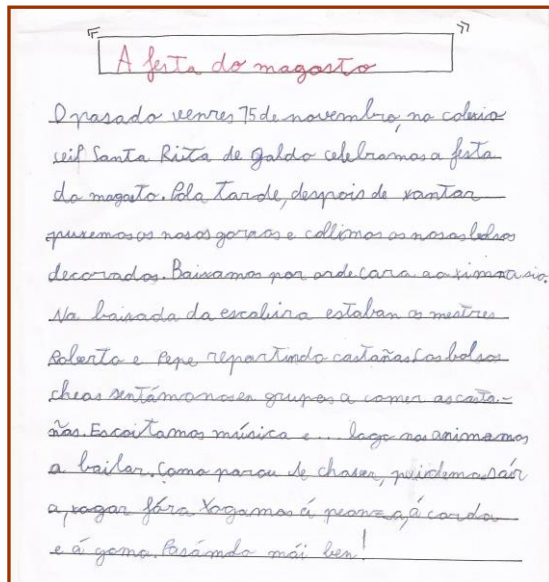 A festa do magosto
O pasado venres 15 de novembro, no colexio
ceip Santa Rita de Galdo celebramos a festa
do magosto. Pola tarde, despois de xantar
puxemos os nosos gorros e collimos os nosos bolsos
decorados. Baixamos por orde cara ao ximnasio.
Na baixada da escaleira estaban os mestres
Roberto e Pepe repartindo castañas. Cos bolsos
cheos sentámonos en grupos a comer as casta-
ñas. Escoitamos música e ... logo nos animamos
a bailar. Como parou de chover, puidemos saír
a xogar fóra. Xogamos á peonza, á corda
e á goma. Pasámolo moi ben!